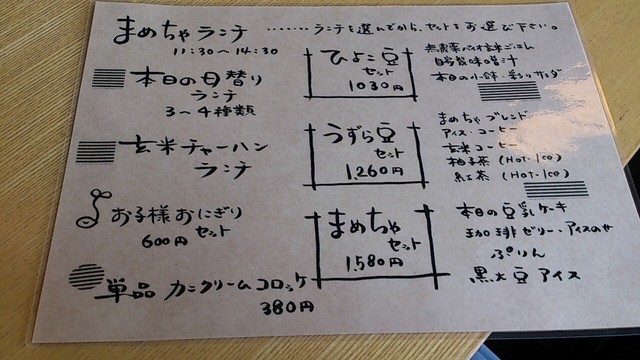 まめちゃランチ ・・・・・・・ランチを選んでから、セットをお選び下さい。
11:30〜14:30
本日の日替り
ランチ
3〜4種類
玄米チャーハン
ランチ
お子様おにぎり
セット
600円
単品 カニクリームコロッケ
380円
ひよこ豆
セット
1030円
うずら豆
セット
1,260円
まめちゃ
セット
1,580円
無農薬バイオ玄米ごはん
自家製味噌汁
本日の小鉢・彩りサラダ
まめちゃブレンド
アイス・コーヒー
玄米コーヒー
柚子茶 (Hot・Ice)
紅茶 (Hot・Ice)
本日の豆乳ケーキ
珈琲ゼリー・アイスのせ
ぷりん
黒大豆アイス